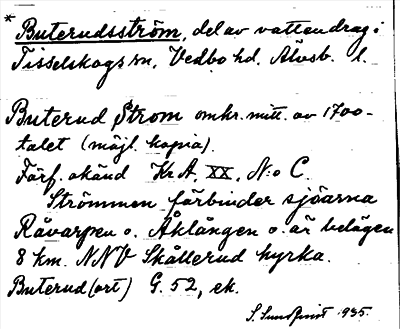 * Buterudsström, del av vattendrag i
Tisselskogs sn, Vedbo hd. Älvsb. l.
Buterud Strom omkr. mitt. av 1700-
talet (möjl. kopia).
Förf. okänd Kr A. XX, N:o C.
Strömmen förbinder sjöarna
Råvarpen o. Åklången o. är belägen
8 km. NNV Skållerud kyrka.
Buterud (ort) G. 52, ek.
S. Sundqvist 1935.